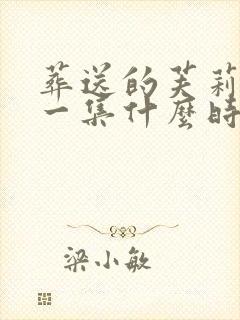 葬送的芙莉
一集什麼時
梁小敏